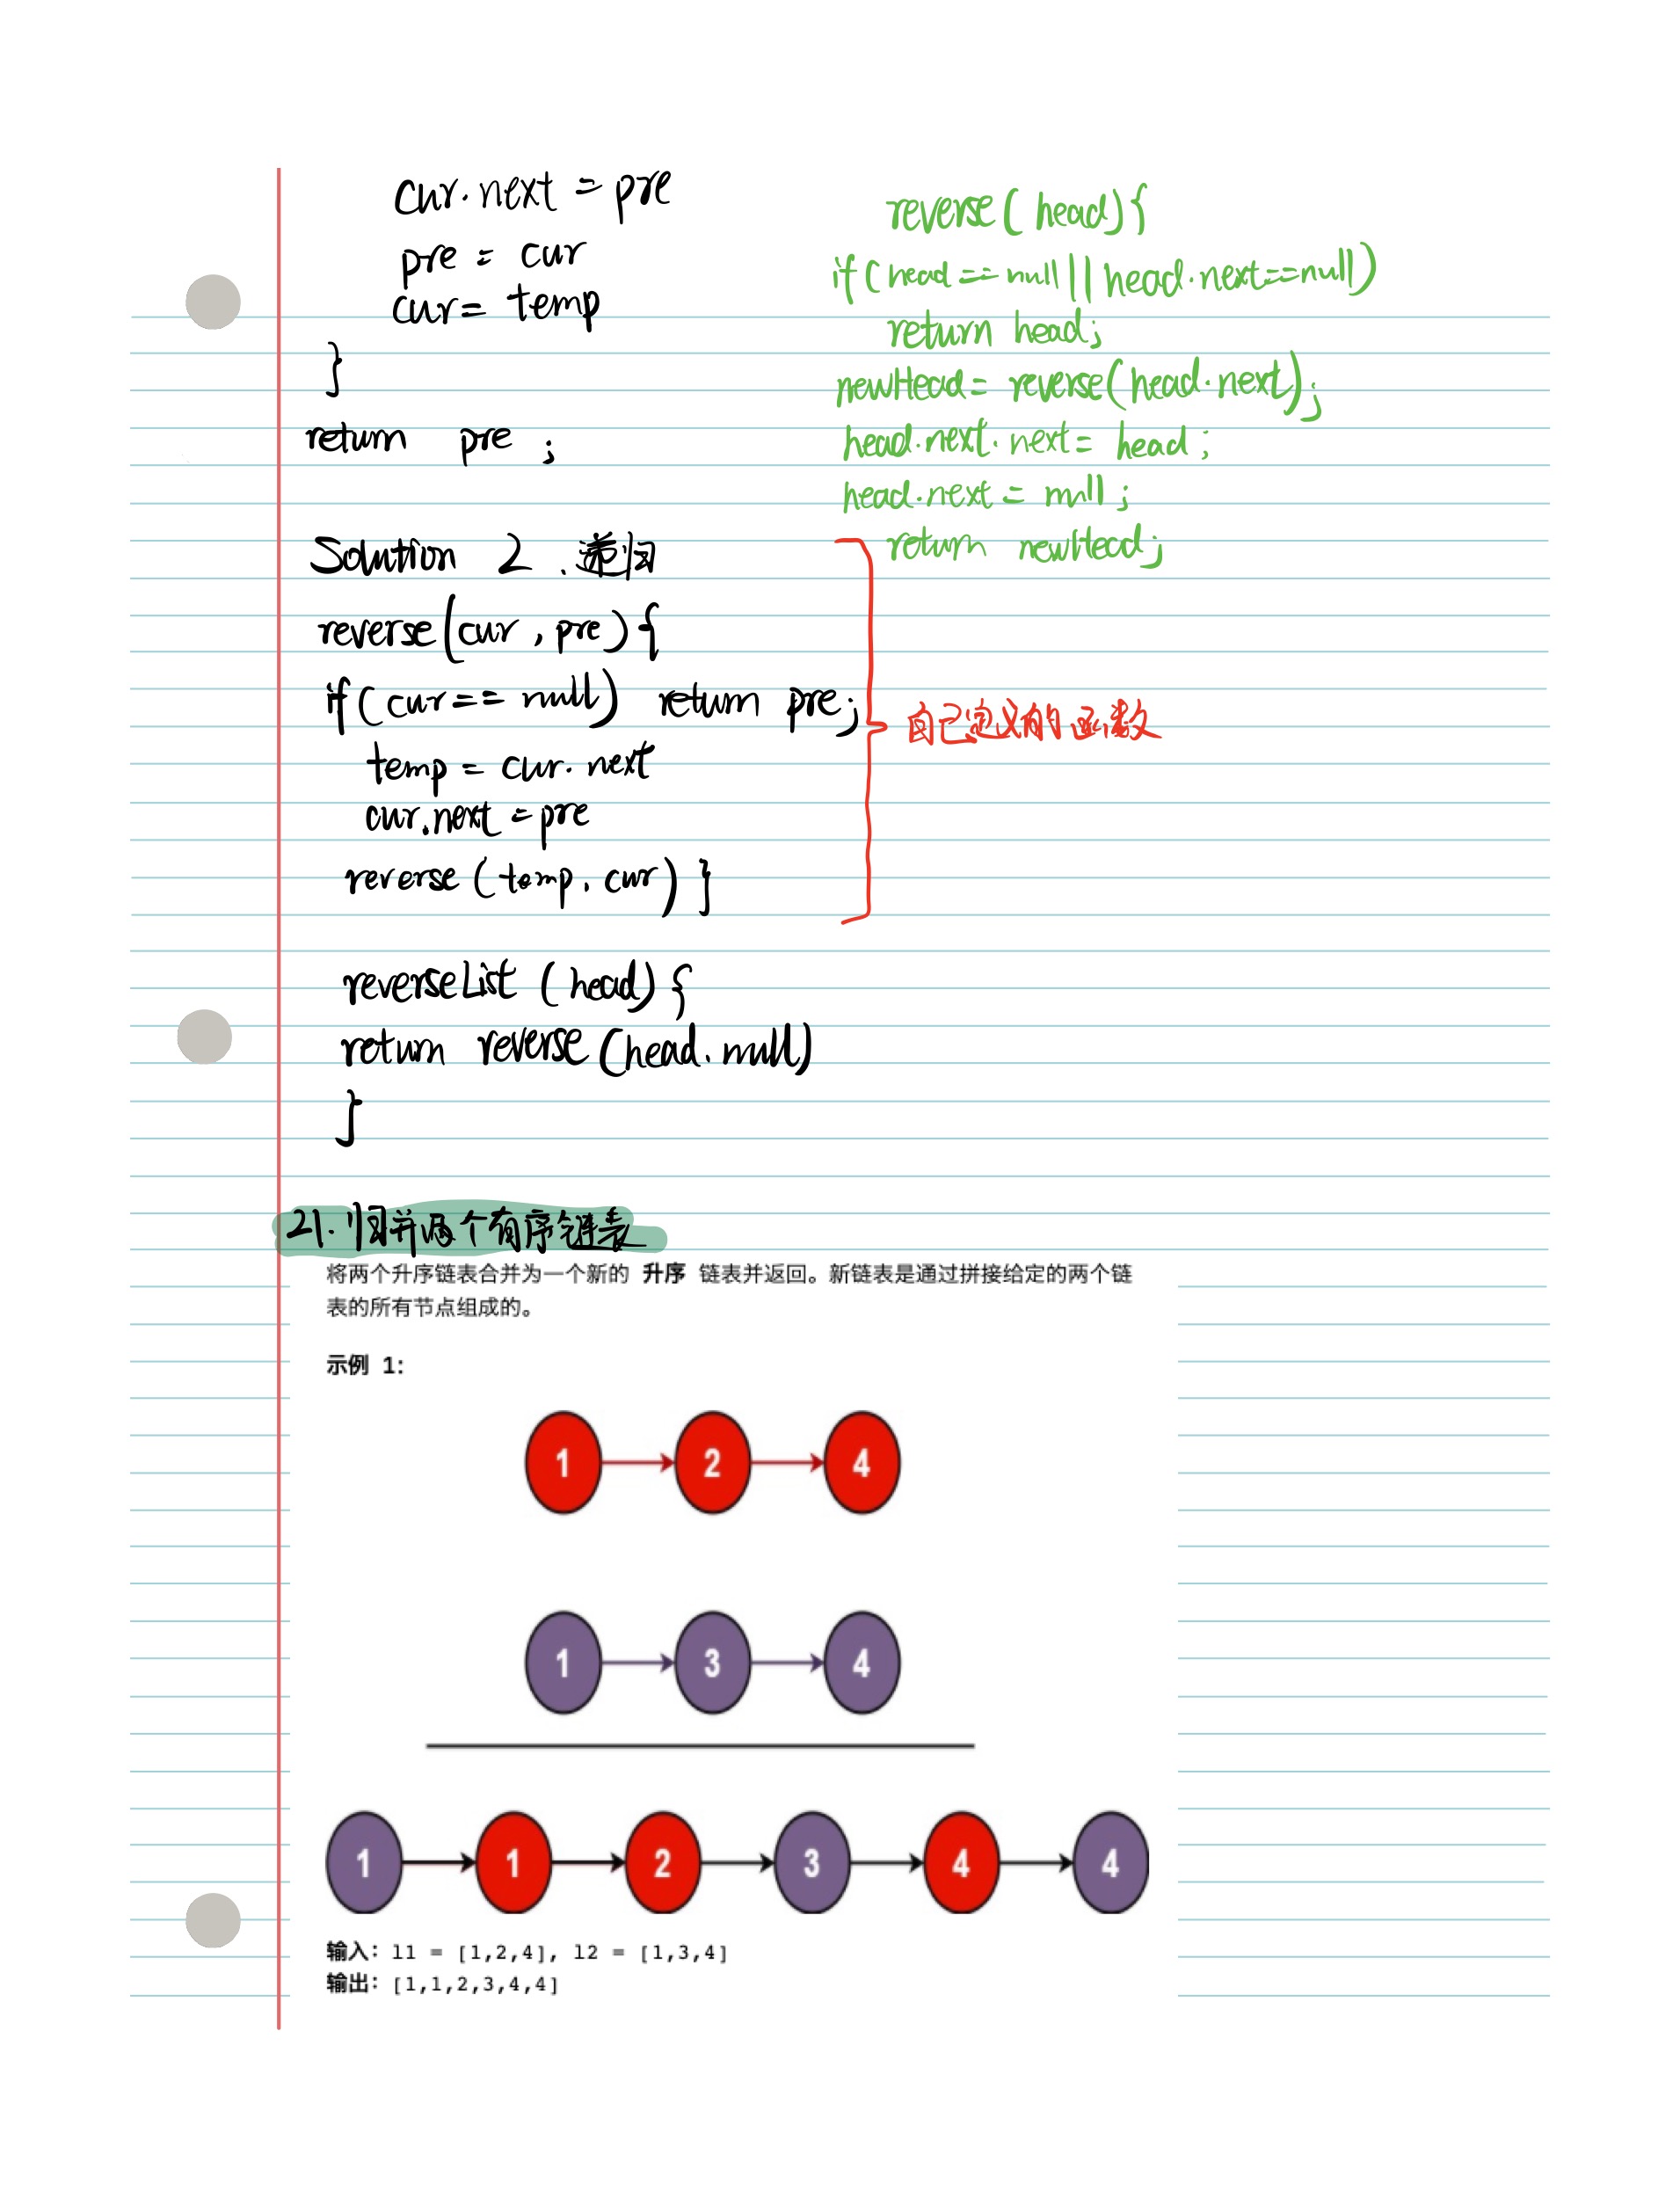 cur.next = pre
pre = cur
cur = temp
}
return pre ;
reverse(head){
if(head==null||head.next==null)
return head;
newHead = reverse(head.next);
head.next.next = head ;
head.next = null ;
return newHead;
Solution 2 . 递归
reverse(cur , pre) {
if(cur == null) return pre;
temp = cur. next
cur.next = pre
reverse (temp, cur) }
自己定义的函数
reverseList (head) {
return reverse (head. null)
}
21. 归并两个有序链表
将两个升序链表合并为一个新的 升序 链表并返回。新链表是通过拼接给定的两个链
表的所有节点组成的。
示例 1:
1 2 4
1 3 4
1 1 2 3 4 4
输入: l1 = [1,2,4], l2 = [1,3,4]
输出: [1,1,2,3,4,4]